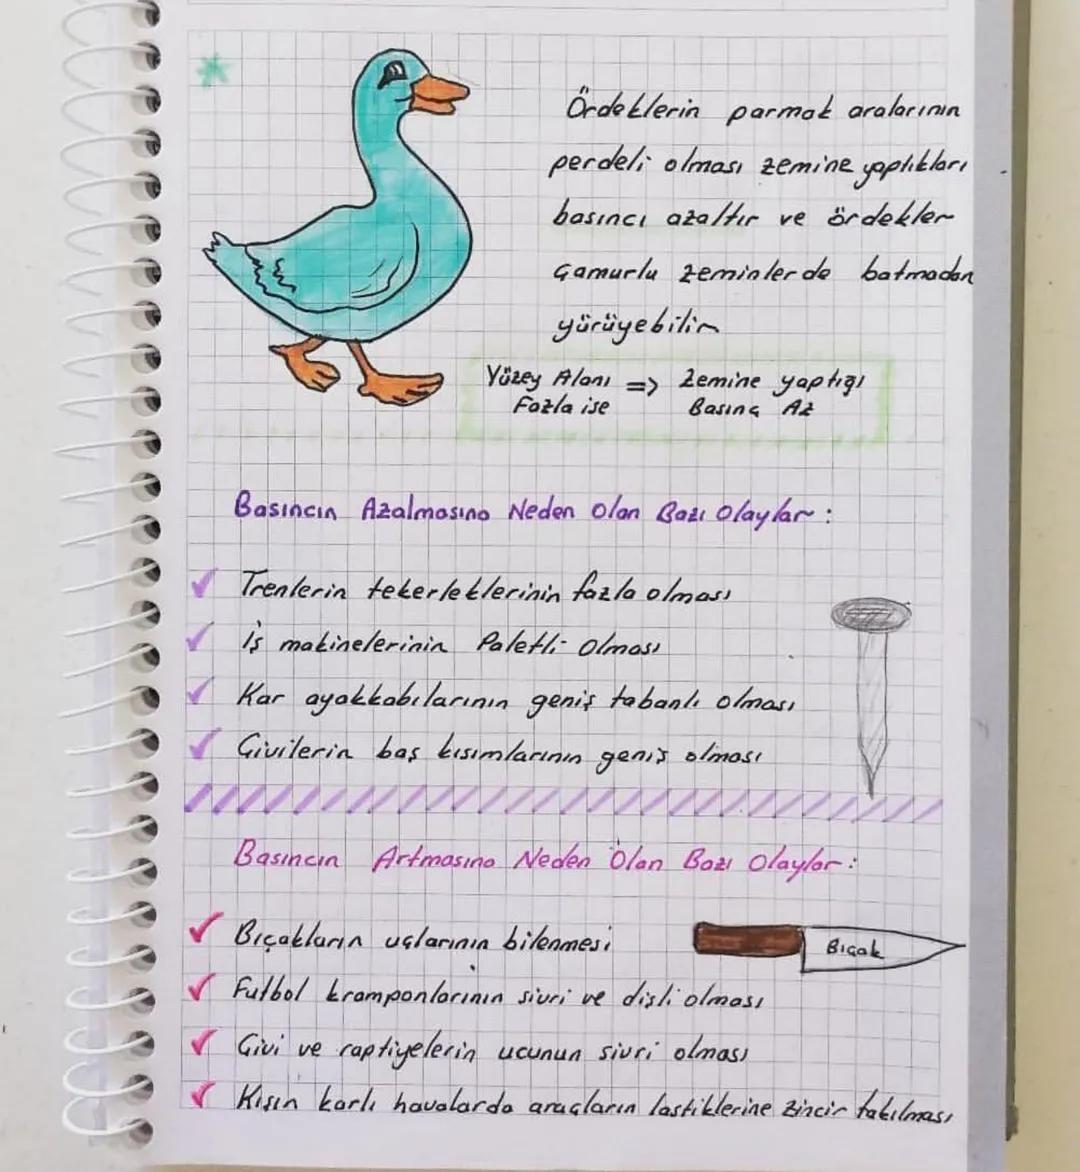 Ördeklerin parmak aralarının
perdeli olması zemine yaptıkları
basıncı azaltır ve ördekler
çamurlu zeminlerde batmadan
yürüyebilir
Yüzey Alanı => Zemine yaptığı
Fazla ise Basınç Az
Basıncın Azalmasına Neden Olan Bazı Olaylar :
✓ Trenlerin tekerleklerinin fazla olması
✓ İş makinelerinin Paletli Olması
✓ Kar ayakkabılarının geniş tabanlı olması
✓ Çivilerin baş kısımlarının geniş olması
Basıncın Artmasına Neden Olan Bazı Olaylar :
✓ Bıçakların uçlarının bilenmesi
Bıçak
✓ Futbol kramponlarının sivri ve dişli olması
✓ Çivi ve raptiyelerin ucunun sivri olması
✓ Kışın karlı havalarda araçların lastiklerine zincir takılması